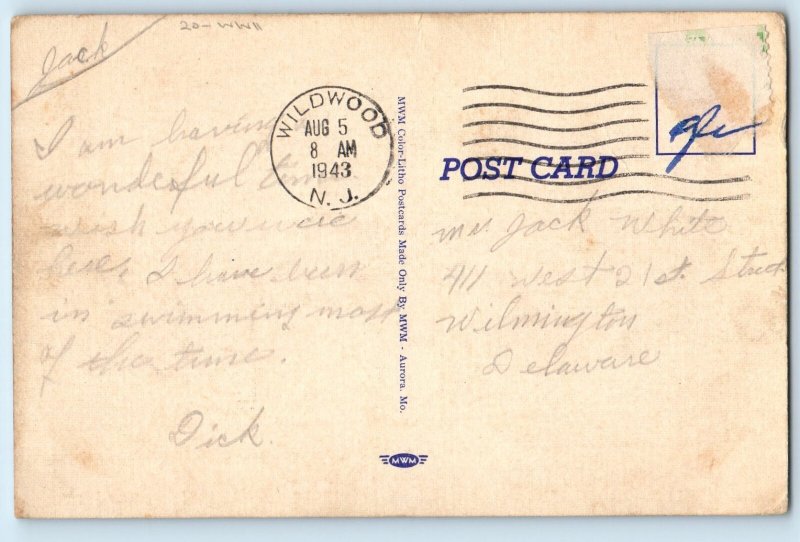 Jack
20-WWII
I am having
wonderful time
wish you were
here, I have been
in swimming most
of the time.
Dick.
WILDWOOD
AUG 5
8 AM
1943
N. J.
MWM Color-Litho Postcards Made Only By MWM - Aurora, Mo.
MWM
POST CARD
Mr. Jack White
411 West 21st. Street
Wilmington
Delaware